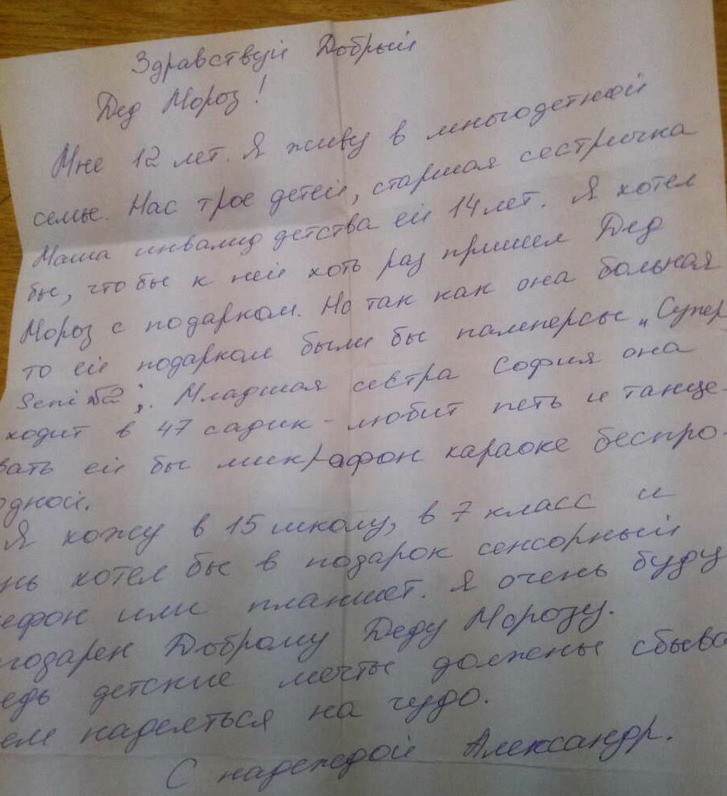 Здравствуй Добрый
Дед Мороз!
Мне 12 лет. Я живу в многодетной
семье. Нас трое детей, старшая сестричка
Маша инвалид детства ей 14 лет. Я хотел
бы, что бы к ней хоть раз пришел Дед
Мороз с подарком. Но так как она больная
то ей подарком были бы памперсы „Супер
Seni №2". Младшая сестра София она
ходит в 47 садик - любит петь и танце-
вать ей бы микрафон караоке беспро-
одной.
Я хожу в 15 школу, в 7 класс и
нь хотел бы в подарок сенсорный
ефон или планшет. Я очень буду
годарен Доброму Деду Морозу.
едь детские мечты должны сбыва
ем надеяться на чудо.
С надеждой Александр.